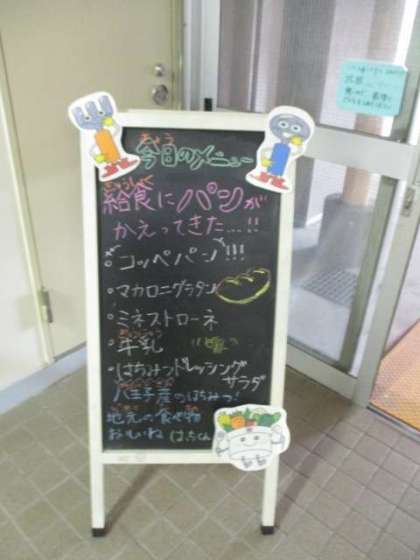 きょう
今日のメニュー
きゅうしょく
給食にパンが
かえってきた…!!
・コッペパン!!!
・マカロニグラタン
・ミネストローネ
・牛乳
・はちみつドレッシング
サラダ
八王子産のはちみつ!
地元の食べ物
おいしいね